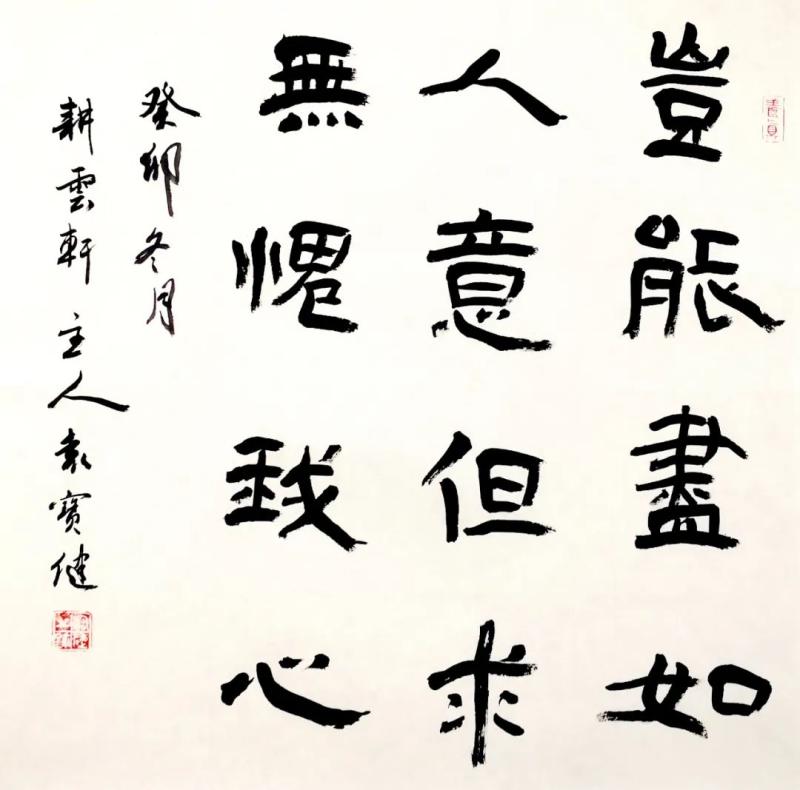 豈能盡如
人意但求
無愧我心
癸卯冬月
耕雲軒主人袁寶健